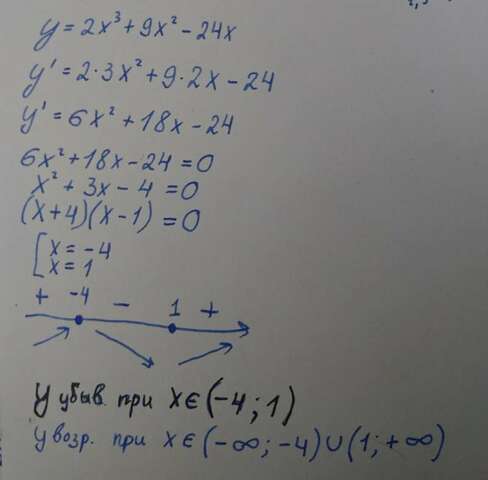 y = 2x³ + 9x² - 24x
y' = 2·3x² + 9·2x - 24
y' = 6x² + 18x - 24
6x² + 18x - 24 = 0
x² + 3x - 4 = 0
(x+4)(x-1) = 0
[x = -4
x = 1
+ -4 - 1 +
y убыв. при x∈(-4; 1)
y возр. при x∈(-∞; -4)∪(1; +∞)